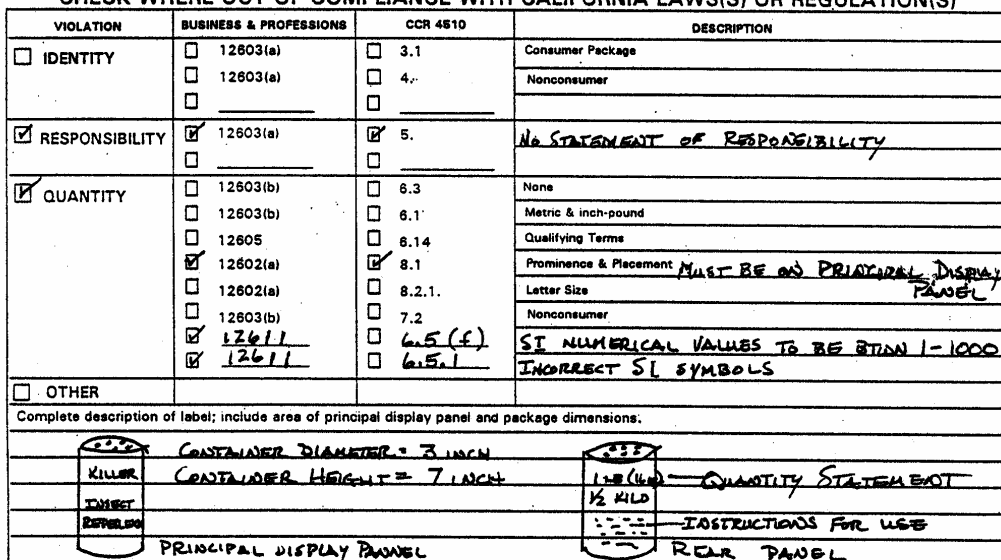 CHECK WHERE OUT OF COMPLIANCE WITH CALIFORNIA LAWS(S) OR REGULATION(S)
VIOLATION BUSINESS & PROFESSIONS CCR 4510 DESCRIPTION
IDENTITY 12603(a) 3.1 Consumer Package
12603(a) 4. Nonconsumer
RESPONSIBILITY 12603(a) 5. NO STATEMENT OF RESPONSIBILITY
QUANTITY 12603(b) 6.3 None
12603(b) 6.1 Metric & inch-pound
12605 6.14 Qualifying Terms
12602(a) 8.1 Prominence & Placement MUST BE ON PRINCIPAL DISPLAY PANEL
12602(a) 8.2.1. Letter Size
12603(b) 7.2 Nonconsumer
12611 6.5 (f) SI NUMERICAL VALUES TO BE BTWN 1-1000
12611 6.5.1 INCORRECT SI SYMBOLS
OTHER
Complete description of label; include area of principal display panel and package dimensions.
CONTAINER DIAMETER = 3 INCH
KILLER CONTAINER HEIGHT = 7 INCH QUANTITY STATEMENT
INSECT 1/2 KILO
REPELLENT INSTRUCTIONS FOR USE
PRINCIPAL DISPLAY PANNEL REAR PANEL